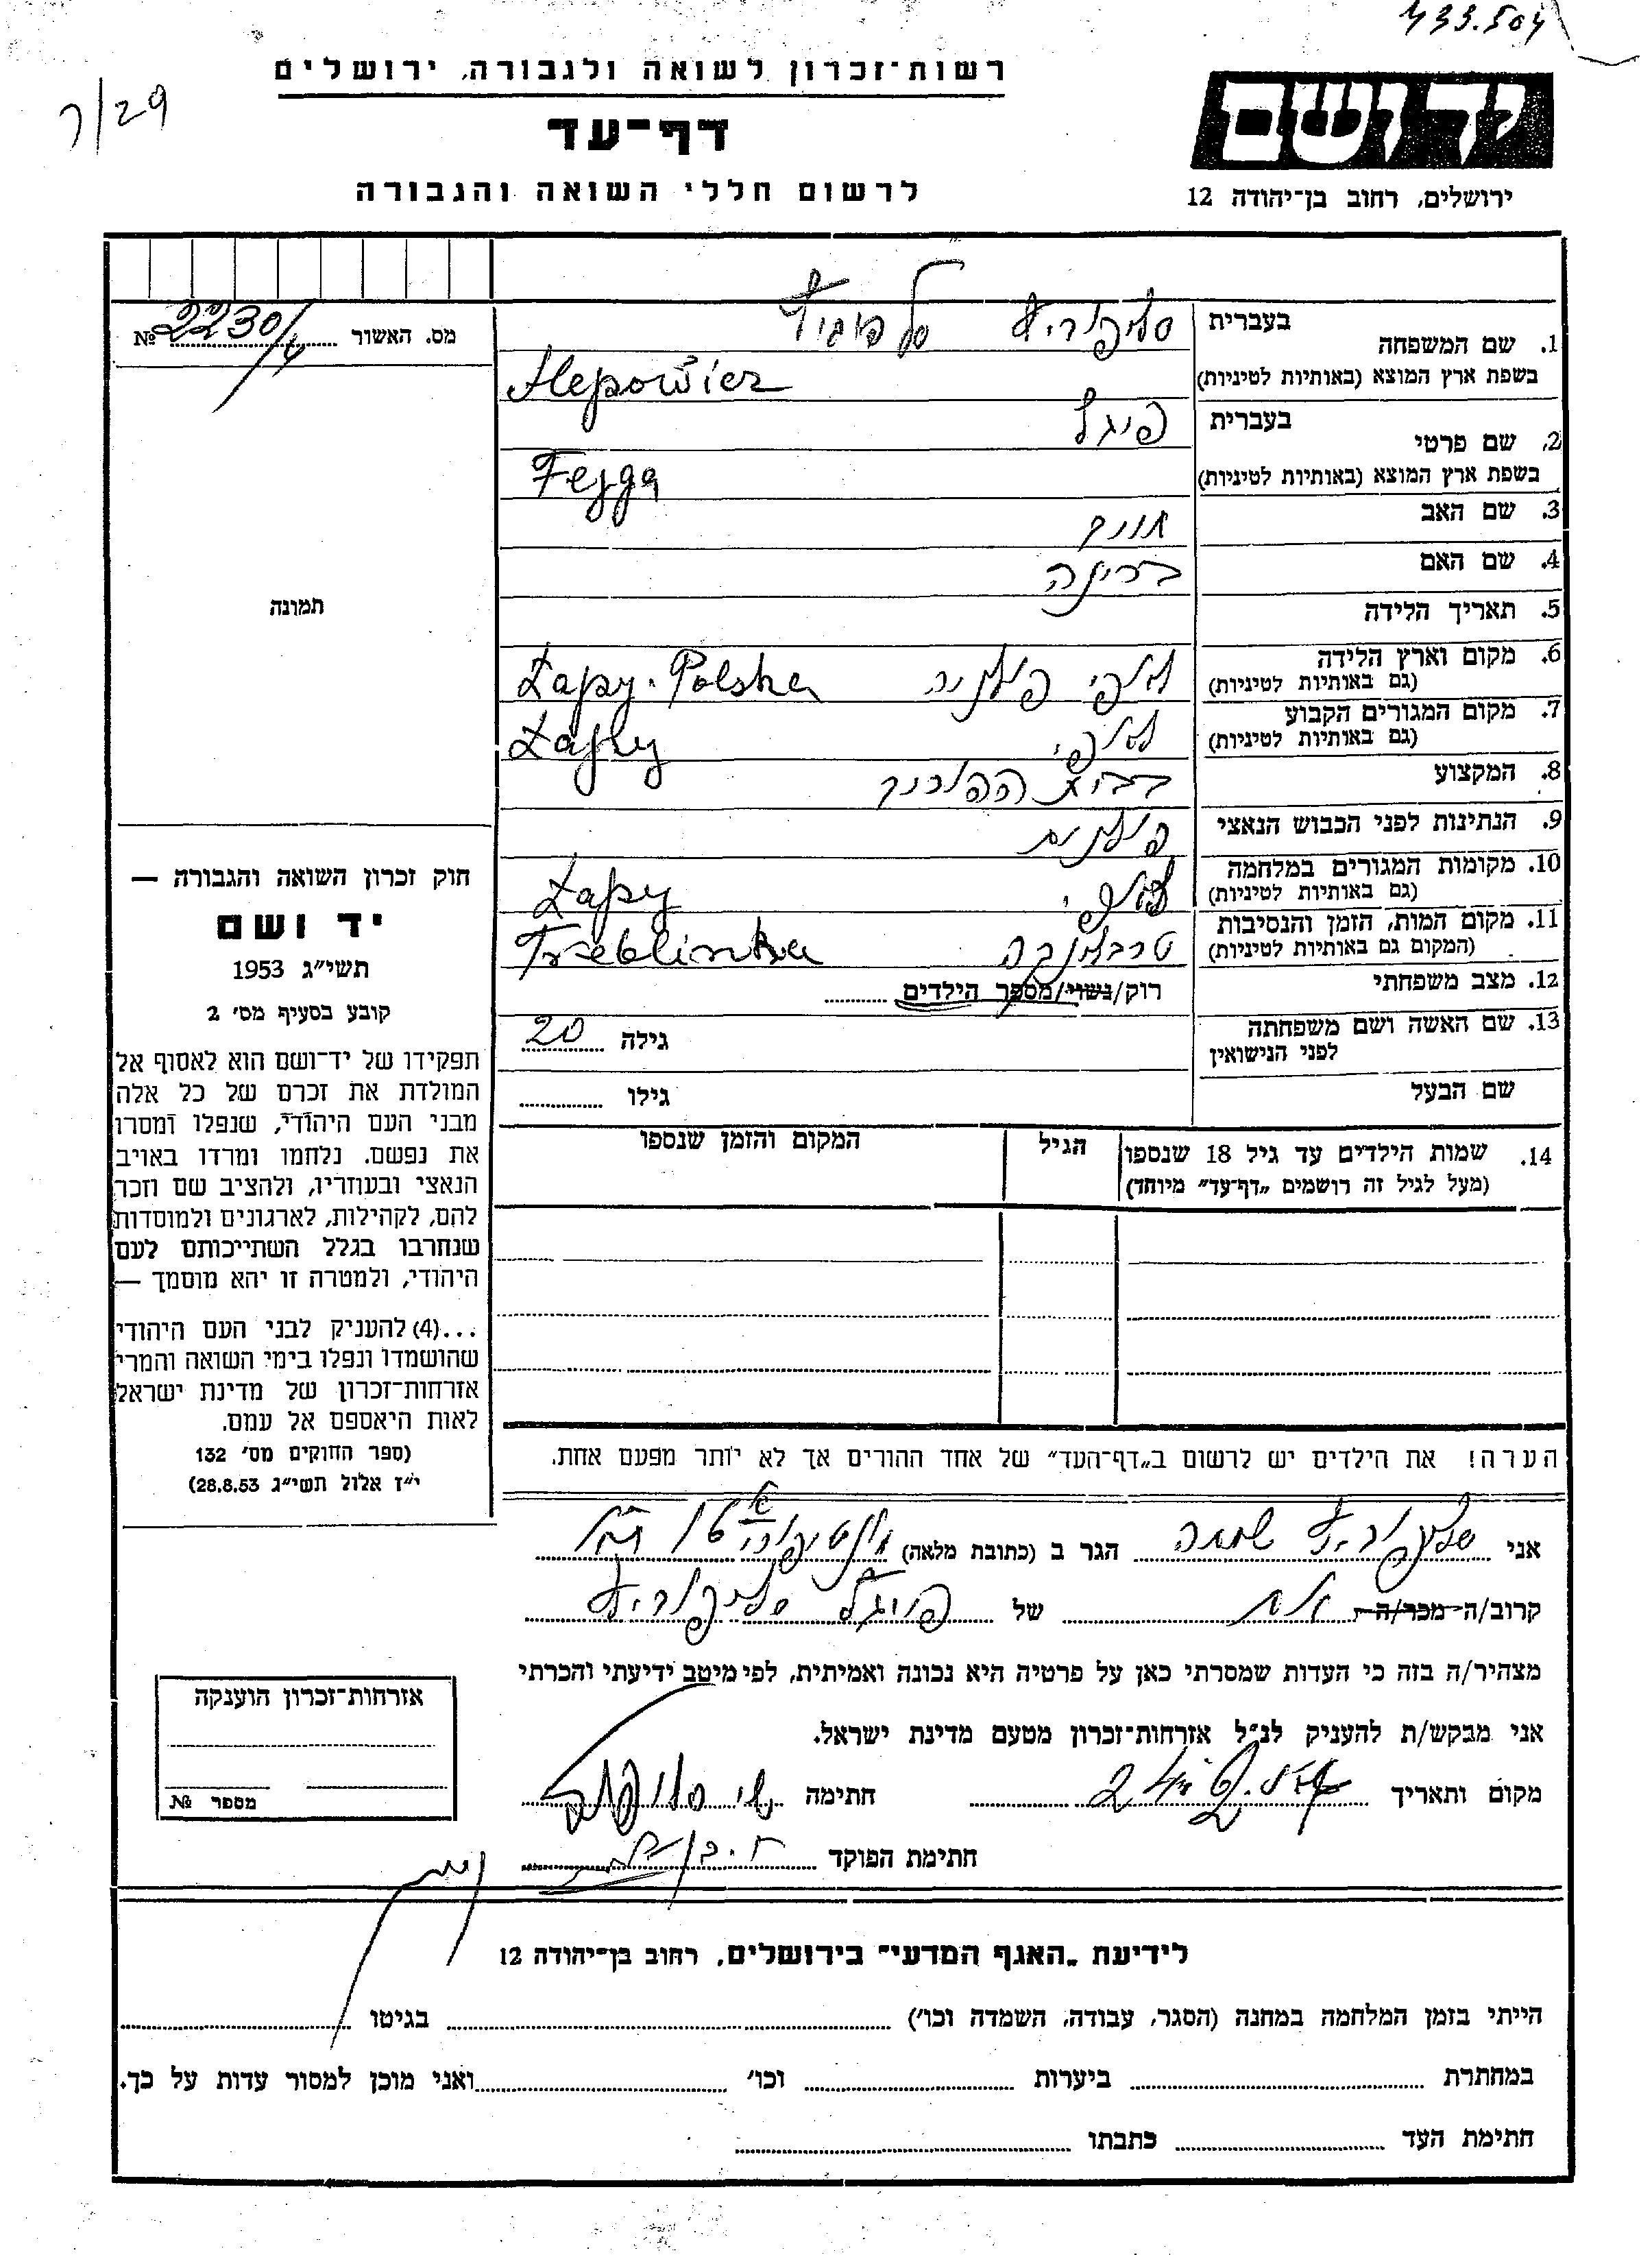 433.504
7/29
רשות־זכרון לשואה ולגבורה, ירושלים
דף־עד
לרשום חללי השואה והגבורה
יד ושם
ירושלים, רחוב בן־יהודה 12
מס. האשור № 2230/4
תמונה
1. שם המשפחה
בעברית
בשפת ארץ המוצא (באותיות לטיניות) Slepowicz
2. שם פרטי
בעברית פיגל
בשפת ארץ המוצא (באותיות לטיניות) Fejga
3. שם האב
4. שם האם
5. תאריך הלידה
6. מקום וארץ הלידה
(גם באותיות לטיניות) לאפי פולניה Łapy. Polska
7. מקום המגורים הקבוע
(גם באותיות לטיניות) לאפי Łapy
8. המקצוע
9. הנתינות לפני הכבוש הנאצי פולנים
10. מקומות המגורים במלחמה
(גם באותיות לטיניות) לאפי Łapy
11. מקום המות, הזמן והנסיבות
(המקום גם באותיות לטיניות) טרבלינקה Treblinka
12. מצב משפחתי רוק/נשוי/מספר הילדים
13. שם האשה ושם משפחתה
לפני הנישואין
גילה 20
שם הבעל
גילו
14. שמות הילדים עד גיל 18 שנספו
(מעל לגיל זה רושמים „דף־עד" מיוחד)
הגיל
המקום והזמן שנספו
הערה! את הילדים יש לרשום ב„דף־העד" של אחד ההורים אך לא יותר מפעם אחת.
חוק זכרון השואה והגבורה —
יד ושם
תשי״ג 1953
קובע בסעיף מס׳ 2
תפקידו של יד־ושם הוא לאסוף אל
המולדת את זכרם של כל אלה
מבני העם היהודי, שנפלו ומסרו
את נפשם, נלחמו ומרדו באויב
הנאצי ובעוזריו, ולהציב שם וזכר
להם, לקהילות, לארגונים ולמוסדות
שנחרבו בגלל השתייכותם לעם
היהודי, ולמטרה זו יהא מוסמך —
...(4) להעניק לבני העם היהודי
שהושמדו ונפלו בימי השואה והמרי
אזרחות־זכרון של מדינת ישראל
לאות היאספם אל עמם.
(ספר החוקים מס׳ 132
י״ז אלול תשי״ג 28.8.53)
אני הגר ב (כתובת מלאה)
קרוב/ה מכר/ה אח של פיגל
מצהיר/ה בזה כי העדות שמסרתי כאן על פרטיה היא נכונה ואמיתית, לפי מיטב ידיעתי והכרתי
אני מבקש/ת להעניק לנ״ל אזרחות־זכרון מטעם מדינת ישראל.
מקום ותאריך חתימה
חתימת הפוקד
אזרחות־זכרון הוענקה
מספר №
לידיעת „האגף המדעי" בירושלים, רחוב בן־יהודה 12
הייתי בזמן המלחמה במחנה (הסגר, עבודה, השמדה וכו׳) בגיטו
במחתרת ביערות וכו׳ ואני מוכן למסור עדות על כך.
חתימת העד כתבתו